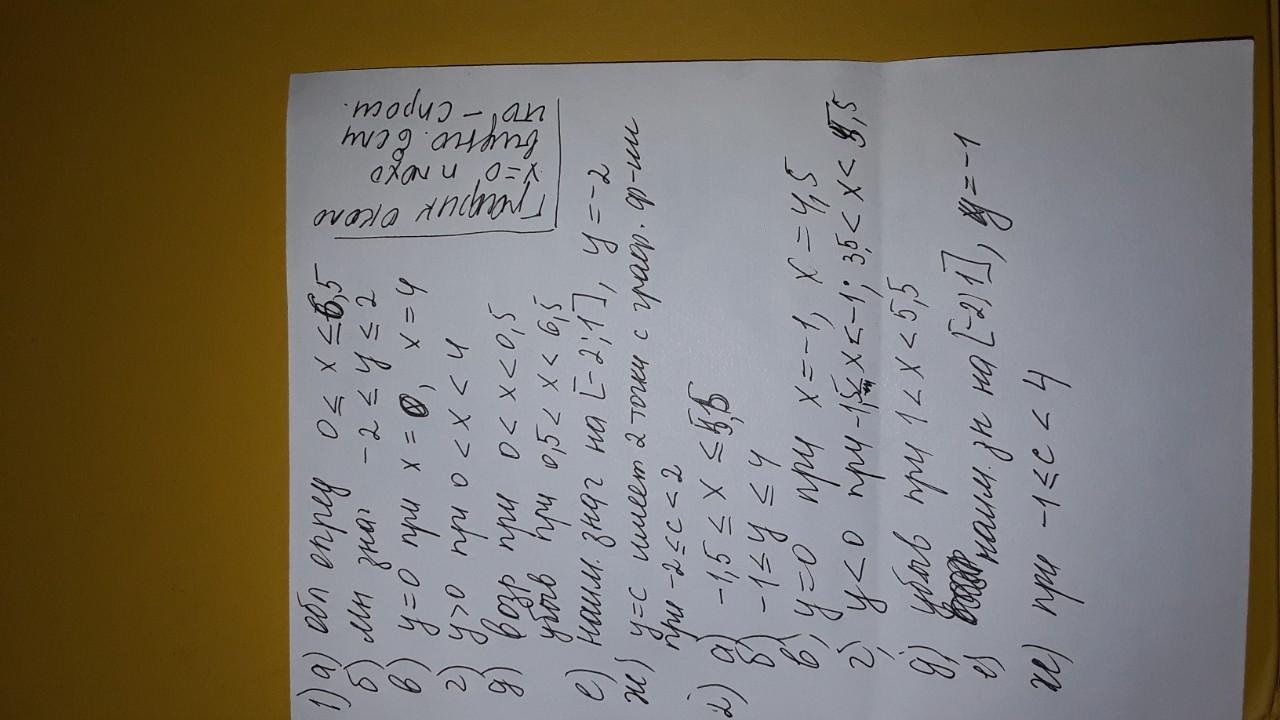 1) а) обл опред 0 ≤ x ≤ 6,5
б) мн знач -2 ≤ y ≤ 2
в) y=0 при x=0, x=4
г) y>0 при 0<x<4
д) возр при 0<x<0,5
убыв при 0,5<x<6,5
е) наим. знач на [-2;1], y=-2
ж) y=c имеет 2 точки с граф. ф-ии
при -2≤c<2
График около
x=0 плохо
видно. Если
что - спроси.
2) а) -1,5 ≤ x ≤ 5,5
б) -1≤y≤4
в) y=0 при x=-1, x=4,5
г) y<0 при -1,5≤x<-1; 3,5<x<5,5
д) убыв при 1<x<5,5
е) наим. зн на [-2;1], y=-1
ж) при -1≤c<4